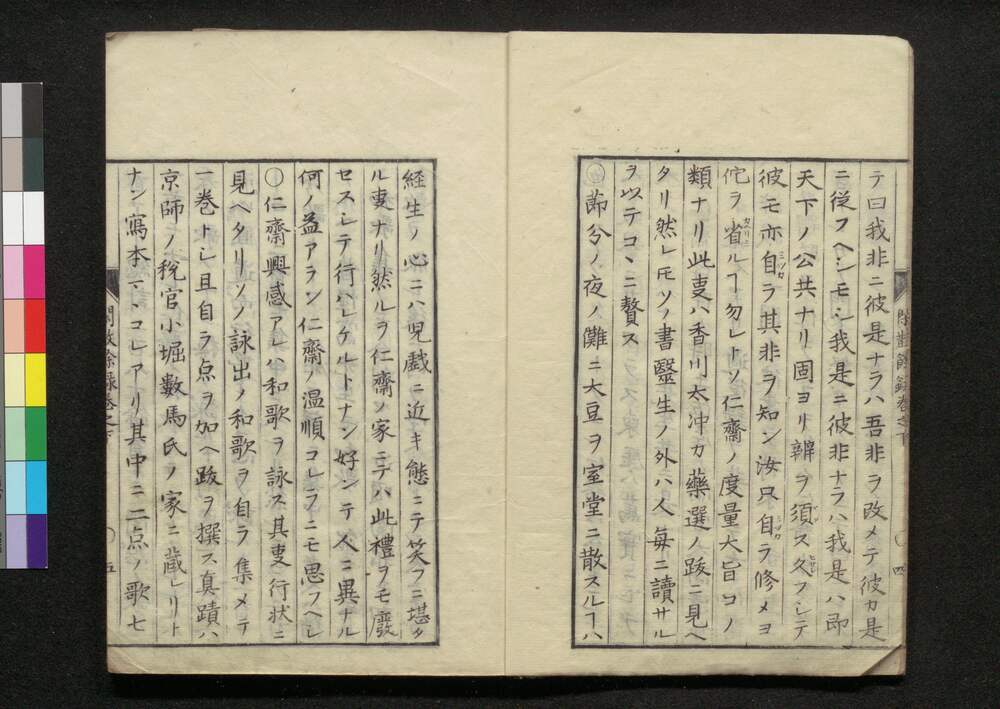 テ曰我非ニ彼是ナラハ吾非ヲ改メテ彼カ是
ニ従フヘシモシ我是ニ彼非ナラハ我是ハ即
天下ノ公共ナリ固ヨリ辨ヲ須ス久フシテ
彼モ亦自ラ其非ヲ知ン汝只自ラ修メヨ
佗ヲ省ルヿ勿レトソ仁齋ノ度量大旨コノ
類ナリ此叓ハ香川太冲カ藥選ノ跋ニ見ヘ
タリ然レ𪜈ソノ書毉生ノ外ハ人毎ニ讀サル
ヲ以テコヽニ贅ス
〇節分ノ夜ノ儺ニ大豆ヲ室堂ニ散スルヿハ
巻之下
〇四
経生ノ心ニハ児戯ニ近キ態ニテ笑フニ堪タ
ル叓ナリ然ルヲ仁齋ノ家ニテハ此禮ヲモ廢
セスシテ行ハレケルトナン好ンテ人ニ異ナル
何ノ益アラン仁齋ノ温順コレラニモ思フヘシ
〇仁齋興感アレハ和歌ヲ詠ス其叓行状ニ
見ヘタリソノ詠出ノ和歌ヲ自ラ集メテ
一巻トシ且自ラ点ヲ加ヘ跋ヲ撰ス真蹟ハ
京師ノ税官小堀數馬氏ノ家ニ蔵レリト
ナン寫本マヽコレアリ其中ニ二点ノ歌七
餘録巻之下
〇五